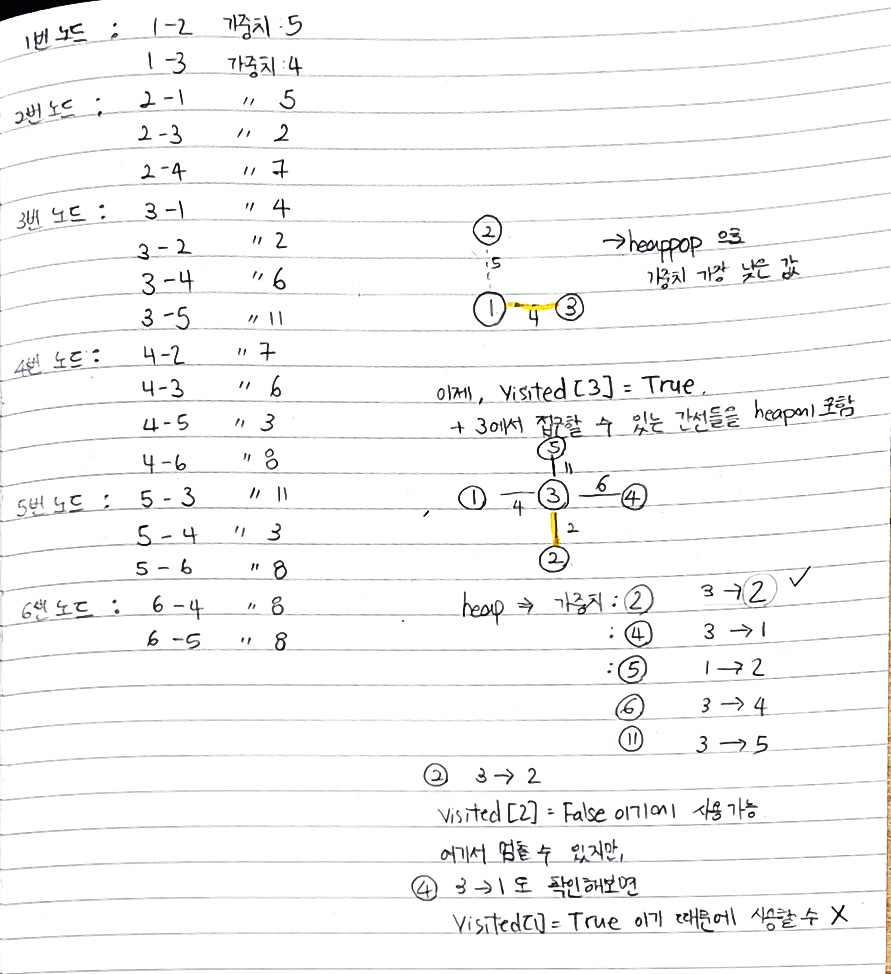 1번 노드 : 1-2 가중치:5
1-3 가중치:4
2번 노드 : 2-1 〃 5
2-3 〃 2
2-4 〃 7
3번 노드 : 3-1 〃 4
3-2 〃 2
3-4 〃 6
3-5 〃 11
4번 노드 : 4-2 〃 7
4-3 〃 6
4-5 〃 3
4-6 〃 8
5번 노드 : 5-3 〃 11
5-4 〃 3
5-6 〃 8
6번 노드 : 6-4 〃 8
6-5 〃 8
②
5
① 4 ③
→heappop 으로
가중치 가장 낮은 값
이제, Visited[3] = True.
+ 3에서 접근할 수 있는 간선들을 heap에 포함
⑤
11
① 4 ③ 6 ④
2
②
heap ⇒ 가중치 : ② 3→② ✓
: ④ 3→1
: ⑤ 1→2
⑥ 3→4
⑪ 3→5
② 3→2
Visited[2] = False 이기에 사용가능
여기서 멈출 수 있지만,
④ 3→1도 확인해보면
Visited[1] = True 이기 때문에 사용할 수 X